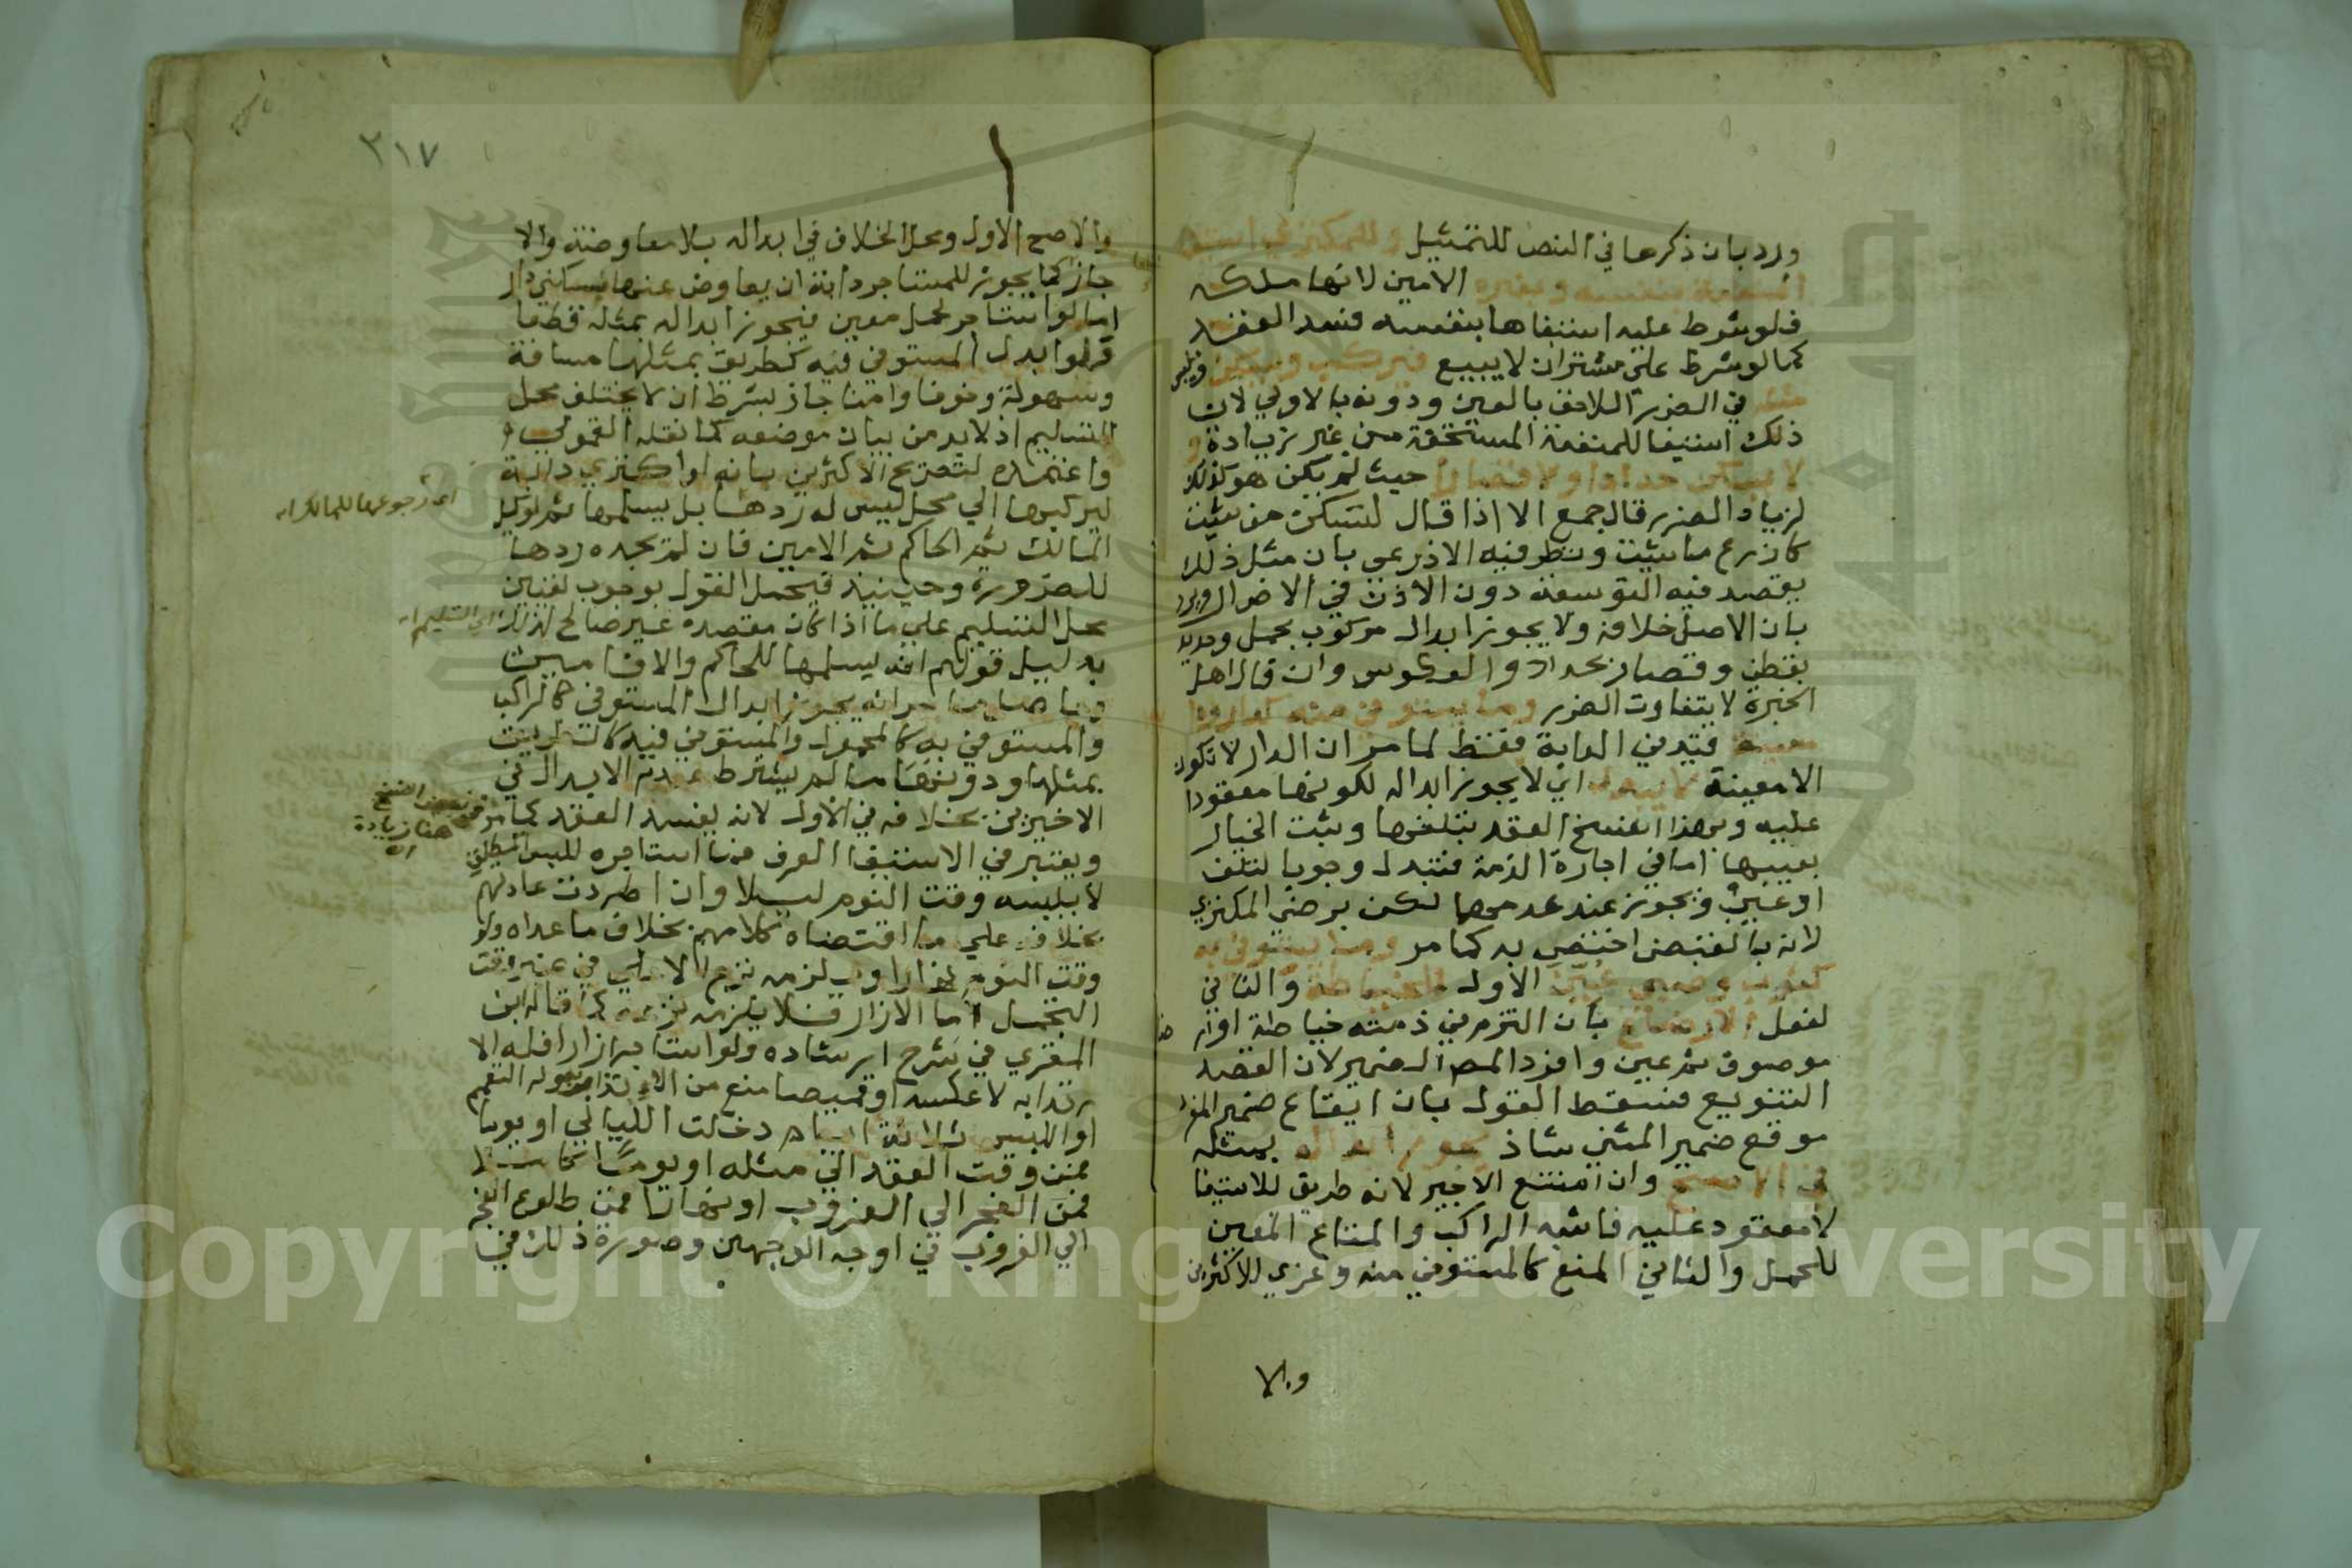 ورد بان ذكرها في النص للتمثيل وللمكتري استيفا
المنفعة بنفسه وبغيره الامين لانها ملكه
فلو شرط عليه استيفاها بنفسه فسد العقد
كما لو شرط على مشتر ان لا يبيع فيركب ويسكن ويلبس
مثله في الضرر اللاحق بالعين ودونه بالاولي لان
ذلك استيفا للمنفعة المستحقة من غير زيادة و
لا يسكن حدادا ولا قصارا حيث لم يكن هو كذلك
لزياد الضرر قال جمع الا اذا قال لتسكن من شيت
كازرع ما شيت ونظر فيه الاذرعي بان مثل ذلك
يقصد فيه التوسعة دون الاذن في الاضرار ويرد
بان الاصل خلافه ولا يجوز ابدال مركوب بحمل وحديد
بقطن وقصار بحداد والعكوس وان قال اهل
الخبرة لا يتفاوت الضرر وما يستوفى منه كدار ودابة
معينة قيد في الدابة فقط لما مر ان الدار لا تكون
الا معينة لا يبدل اي لا يجوز ابداله لكونها معقودا
عليه ولهذا انفسخ العقد بتلفها وثبت الخيار
بعيبها اما في اجارة الذمة فتبدل وجوبا لتلف
او عيب ويجوز عند عدمها لكن برضي المكتري
لانه بالقبض اختص به كما مر وما يستوفى به
كثوب وصبي عين الاول للخياطة والثاني
لفعل الارضاع بان التزم في ذمته خياطة او ار ضا
موصوف ثم عين وافرد المص الضمير لان القصد
التنويع فسقط القول بان ايقاع ضمير المفرد
موقع ضمير المثني شاذ يجوز ابداله بمثله
في الاصح وان امتنع الاجير لانه طريق للاستيفا
لا معقود عليه فاشبه الراكب والمتاع المعين
للحمل والثاني المنع كالمستوفي منه وعزي للاكثرين
والا
٢١٧
والاصح الاول ومحل الخلاف في ابداله بلا معاوضة والا
جاز كما يجوز للمستاجر دابة ان يعاوض عنها بسكني دار
اما لو استاجر لحمل معين فيجوز ابداله بمثله قطعا
ولو ابدل المستوفي فيه كطريق بمثلها مسافة
وسهولة وخوفا وامنا جاز بشرط ان لا يختلف محل
التسليم اذ لابد من بيان موضعه كما نقله القمولي و
واعتمده لتصريح الاكثرين بانه لو اكتري دابة
ليركبها الي محل ليس له ردها بل يسلمها ثم لوكيل
المالك ثم الحاكم ثم الامين فان لم يجده ردها
للضرورة وحينيذ فيحمل القول بوجوب تعيين
محل التسليم علي ما اذا كان مقصده غير صالح لذلك
بدليل قولهم انه يسلمها للحاكم والا فامين
وحاصل ما مر انه يجوز ابدال المستوفي كالراكب
والمستوفي به كالمحمول والمستوفي فيه كالطريق
بمثلها ودونها ما لم يشترط عدم الابدال في
الاخيرين بخلافه في الاول لانه يفسد العقد كما مر
ويعتبر في الاستيفا العرف فما استاجره للبس المطلق
لا يلبسه وقت النوم ليلا وان اطردت عادتهم
بخلافه علي ما اقتضاه كلامهم بخلاف ما عداه ولو
وقت النوم نهارا ويلزمه نزع الاعلي في غير وقت
التجمل اما الازار فلا يلزمه نزعه كما قاله ابن
المقري في شرح ارشاده ولو استاجر ازارا فله الا
رتدا به لا عكسه او قميصا منع من الاتزار به وله التعمم
او للبس ثلاثة ايام دخلت الليالي او يوما
فمن وقت العقد الي مثله او يوما كاملا
فمن الفجر الي الغروب او نهارا فمن طلوع الفجر
الي الغروب في اوجه الوجهين وصورة ذلك في
اي رجوعها للمالك اه
اي التسليم اه
في بعض النسخ
هنا زيادة
اه